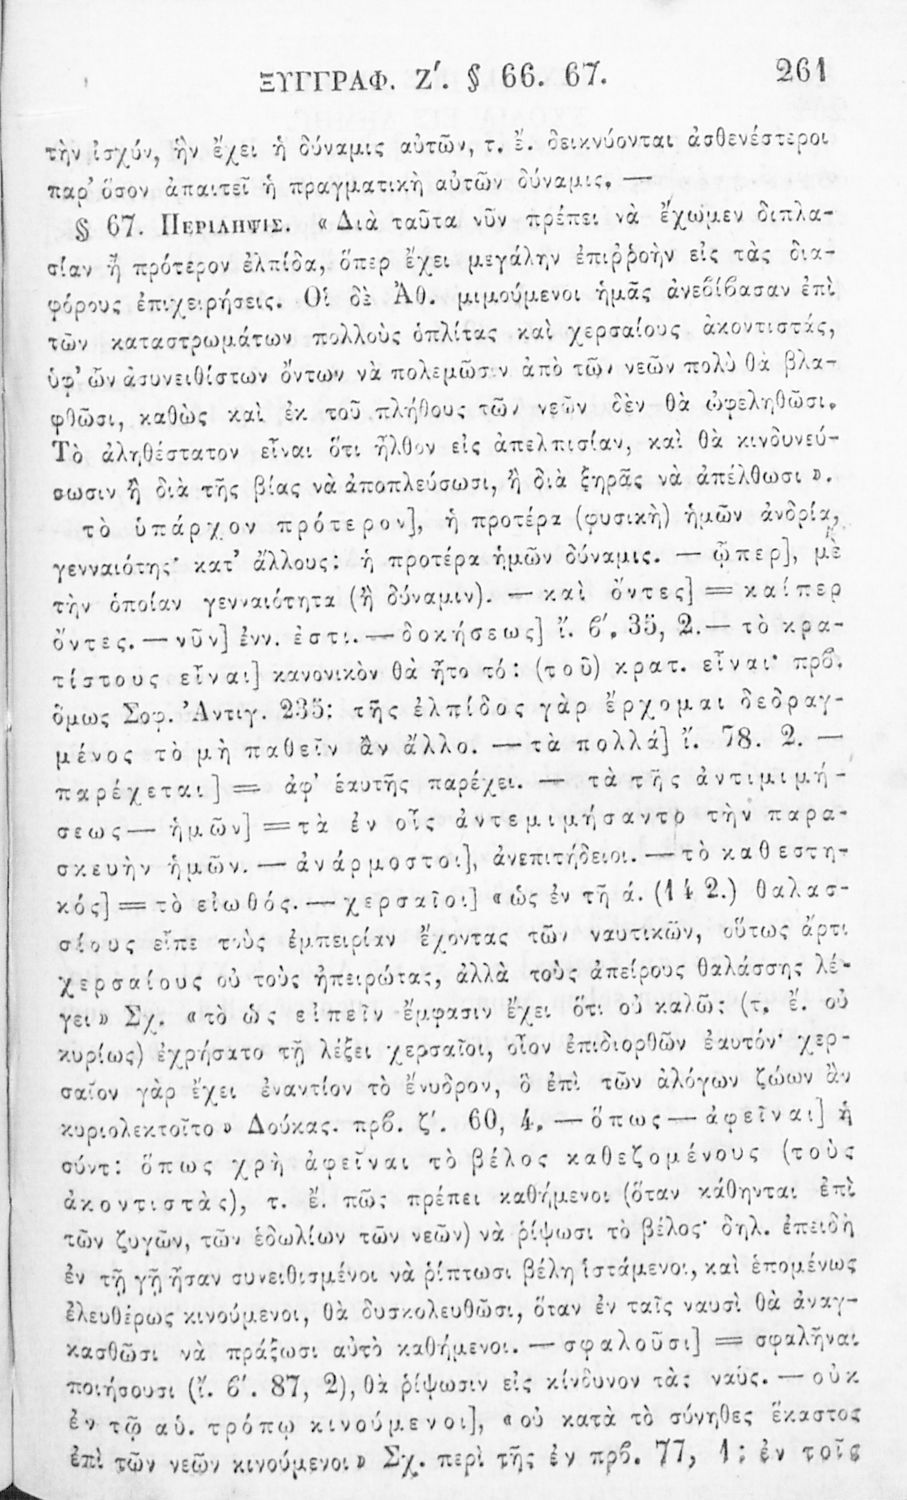 ΞΥΓΓΡΑΦ. Ζʹ. § 66. 67. 261
τὴν ἰσχύν, ἣν ἔχει ἡ δύναμις αὐτῶν, τ. ἔ. δεικνύονται ἀσθενέστεροι
παρ' ὅσον ἀπαιτεῖ ἡ πραγματικὴ αὐτῶν δύναμις. —
§ 67. ΠΕΡΙΛΗΨΙΣ. «Διὰ ταῦτα νῦν πρέπει νὰ ἔχωμεν διπλα-
σίαν ἢ πρότερον ἐλπίδα, ὅπερ ἔχει μεγάλην ἐπιῤῥοὴν εἰς τὰς δια-
φόρους ἐπιχειρήσεις. Οἱ δὲ Ἀθ. μιμούμενοι ἡμᾶς ἀνεβίβασαν ἐπὶ
τῶν καταστρωμάτων πολλοὺς ὁπλίτας καὶ χερσαίους ἀκοντιστάς,
ὑφ' ὧν ἀσυνειθίστων ὄντων νὰ πολεμῶσιν ἀπὸ τῶν νεῶν πολὺ θὰ βλα-
φθῶσι, καθὼς καὶ ἐκ τοῦ πλήθους τῶν νεῶν δὲν θὰ ὠφεληθῶσι.
Τὸ ἀληθέστατον εἶναι ὅτι ἦλθον εἰς ἀπελπισίαν, καὶ θὰ κινδυνεύ-
σωσιν ἢ διὰ τῆς βίας νὰ ἀποπλεύσωσι, ἢ διὰ ξηρᾶς νὰ ἀπέλθωσι».
τὸ ὑπάρχον πρότερον], ἡ προτέρα (φυσικὴ) ἡμῶν ἀνδρία,
γενναιότης· κατ' ἄλλους: ἡ προτέρα ἡμῶν δύναμις. — ᾧπερ], μὲ
τὴν ὁποίαν γενναιότητα (ἢ δύναμιν). — καὶ ὄντες] = καίπερ
ὄντες. — νῦν] ἐνν. ἐστι. — δοκήσεως] ἴ. βʹ. 35, 2. — τὸ κρα-
τίστους εἶναι] κανονικὸν θὰ ἦτο τό: (τοῦ) κρατ. εἶναι· πρβ.
ὅμως Σοφ. Ἀντιγ. 235: τῆς ἐλπίδος γὰρ ἔρχομαι δεδραγ-
μένος τὸ μὴ παθεῖν ἂν ἄλλο. — τὰ πολλά] ἴ. 78. 2. —
παρέχεται] = ἀφ' ἑαυτῆς παρέχει. — τὰ τῆς ἀντιμιμή-
σεως — ἡμῶν] = τὰ ἐν οἷς ἀντεμιμήσαντο τὴν παρα-
σκευὴν ἡμῶν. — ἀνάρμοστοι], ἀνεπιτήδειοι. — τὸ καθεστη-
κός] = τὸ εἰωθός. — χερσαῖοι] «ὡς ἐν τῇ ά. (142.) θαλασ-
σίους εἶπε τοὺς ἐμπειρίαν ἔχοντας τῶν ναυτικῶν, οὕτως ἄρτι
χερσαίους οὐ τοὺς ἠπειρώτας, ἀλλὰ τοὺς ἀπείρους θαλάσσης λέ-
γει» Σχ. «τὸ ὡς εἰπεῖν ἔμφασιν ἔχει ὅτι οὐ καλῶς (τ. ἔ. οὐ
κυρίως) ἐχρήσατο τῇ λέξει χερσαῖοι, οἷον ἐπιδιορθῶν ἑαυτόν· χερ-
σαῖον γὰρ ἔχει ἐναντίον τὸ ἔνυδρον, ὃ ἐπὶ τῶν ἀλόγων ζώων ἂν
κυριολεκτοῖτο» Δούκας. πρβ. ζʹ. 60, 4. — ὅπως — ἀφεῖναι] ἡ
σύντ: ὅπως χρὴ ἀφεῖναι τὸ βέλος καθεζομένους (τοὺς
ἀκοντιστὰς), τ. ἔ. πῶς πρέπει καθήμενοι (ὅταν κάθηνται ἐπὶ
τῶν ζυγῶν, τῶν ἑδωλίων τῶν νεῶν) νὰ ῥίψωσι τὸ βέλος· δηλ. ἐπειδὴ
ἐν τῇ γῇ ἦσαν συνειθισμένοι νὰ ῥίπτωσι βέλη ἱστάμενοι, καὶ ἑπομένως
ἐλευθέρως κινούμενοι, θὰ δυσκολευθῶσι, ὅταν ἐν ταῖς ναυσὶ θὰ ἀναγ-
κασθῶσι νὰ πράξωσι αὐτὸ καθήμενοι. — σφαλοῦσι] = σφαλῆναι
ποιήσουσι (ἴ. βʹ. 87, 2), θὰ ῥίψωσιν εἰς κίνδυνον τὰς ναῦς. — οὐκ
ἐν τῷ αὑ. τρόπῳ κινούμενοι], «οὐ κατὰ τὸ σύνηθες ἕκαστος
ἐπὶ τῶν νεῶν κινούμενοι» Σχ. περὶ τῆς ἐν πρβ. 77, 1: ἐν τοῖς